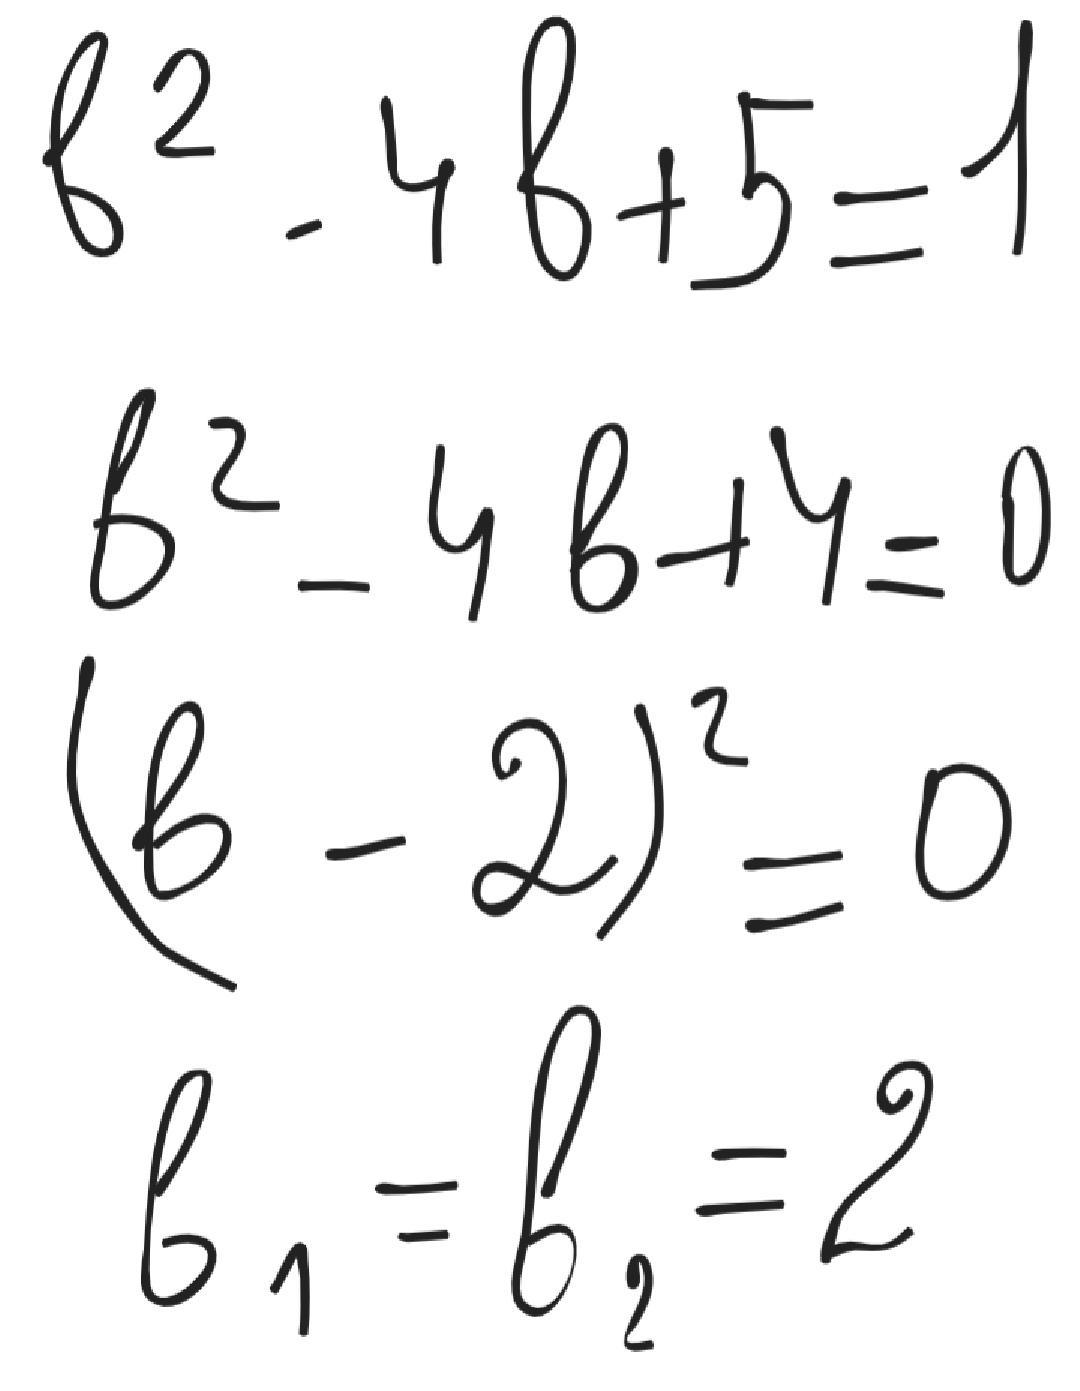 b² - 4b + 5 = 1
b² - 4b + 4 = 0
(b - 2)² = 0
b₁ = b₂ = 2